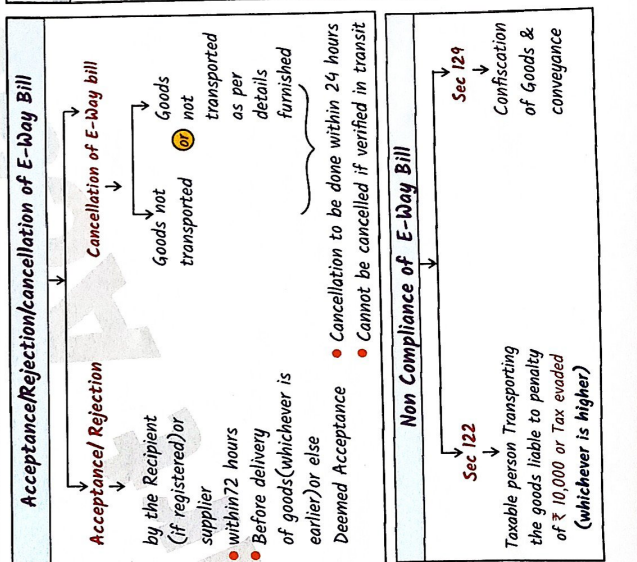 Acceptance/Rejection/cancellation of E-Way Bill
Acceptance/ Rejection
by the Recipient
(if registered)or
supplier
within72 hours
Before delivery
of goods(whichever is
earlier)or else
Deemed Acceptance
Cancellation of E-Way bill
Goods not
transported
or
Goods
not
transported
as per
details
furnished
Cancellation to be done within 24 hours
Cannot be cancelled if verified in transit
Non Compliance of E-Way Bill
Sec 122
Taxable person Transporting
the goods liable to penalty
of ₹ 10,000 or Tax evaded
(whichever is higher)
Sec 129
Confiscation
of Goods &
conveyance